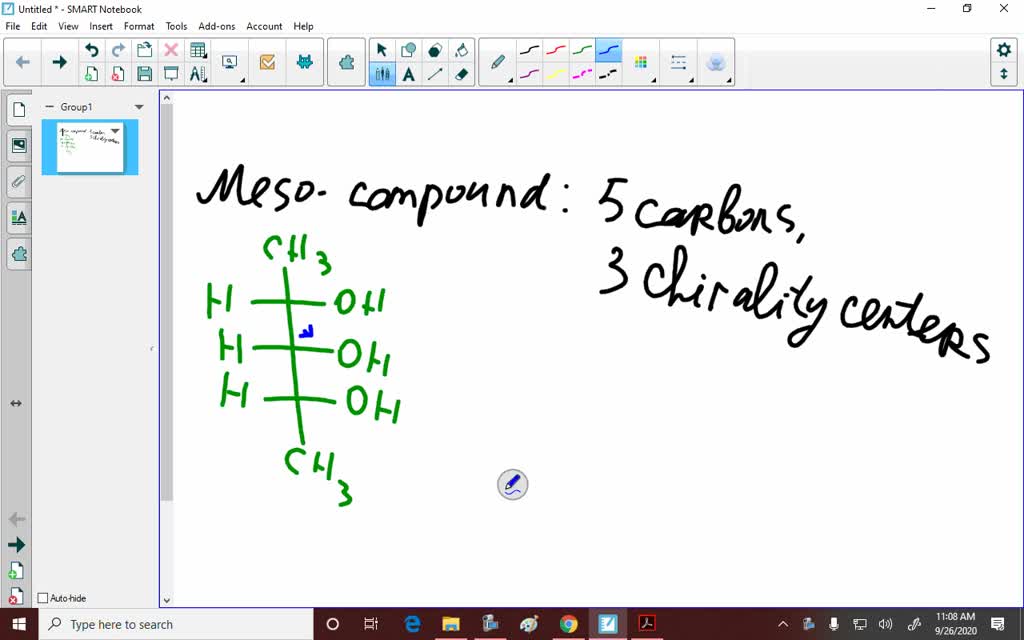 Untitled * - SMART Notebook
File Edit View Insert Format Tools Add-ons Account Help
Group1
Meso- compound: 5 carbons,
3 chirality centers
CH3
H OH
H OH
H OH
CH3
Auto-hide
Type here to search
11:08 AM
9/26/2020